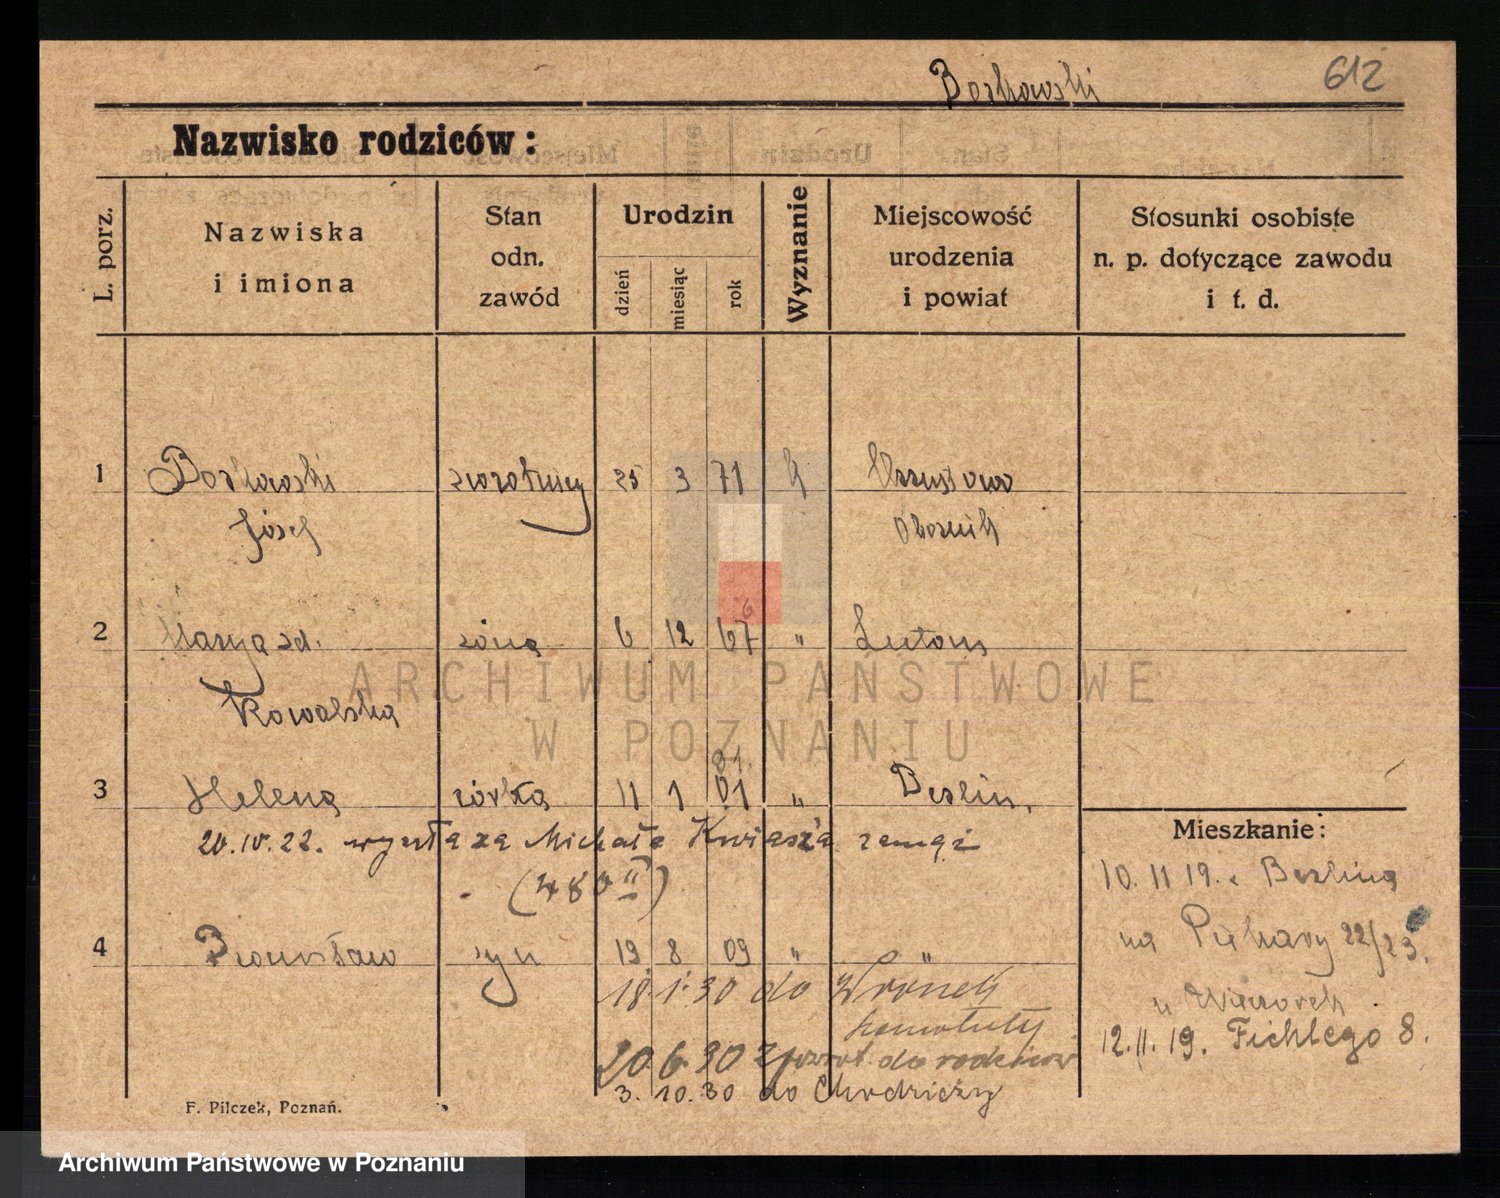 Borkowski 612
Nazwisko rodziców:
L. porz.
Nazwiska
i imiona
Stan
odn.
zawód
Urodzin
dzień
miesiąc
rok
Wyznanie
Miejscowość
urodzenia
i powiat
Stosunki osobiste
n. p. dotyczące zawodu
i t. d.
1 Borkowski 25 3 71 k
Józef Obornik
2 Marya zd. żona 6 12 67 "
6
Kowalska
81.
3 Helena córka 11 1 01 " Berlin.
20.IV.22. wyszła za Michała Kwiasza zamąż
(480 II)
4 Bronisław syn 19 8 09 " "
18.1.30 do Wronek
20.6.30 z powrot. do rodziców
3.10.30 do Chodzieży
Mieszkanie:
10.11 19. z Berlina
na Piekary 22/23.
u
12.11.19. Fichlego 8.
F. Pilczek, Poznań.
ARCHIWUM PAŃSTWOWE
W POZNANIU
Archiwum Państwowe w Poznaniu